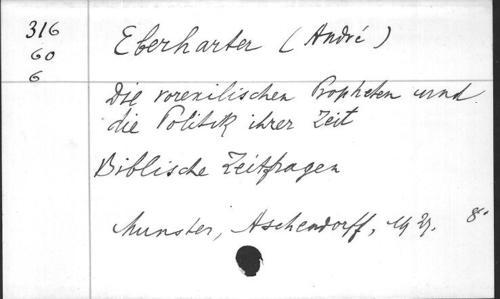 316
60
6
Eberharter (André)
Die vorexilischen Propheten und
die Politik ihrer Zeit
Biblische Zeitfragen
Munster, Aschendorff, 1927. 8°